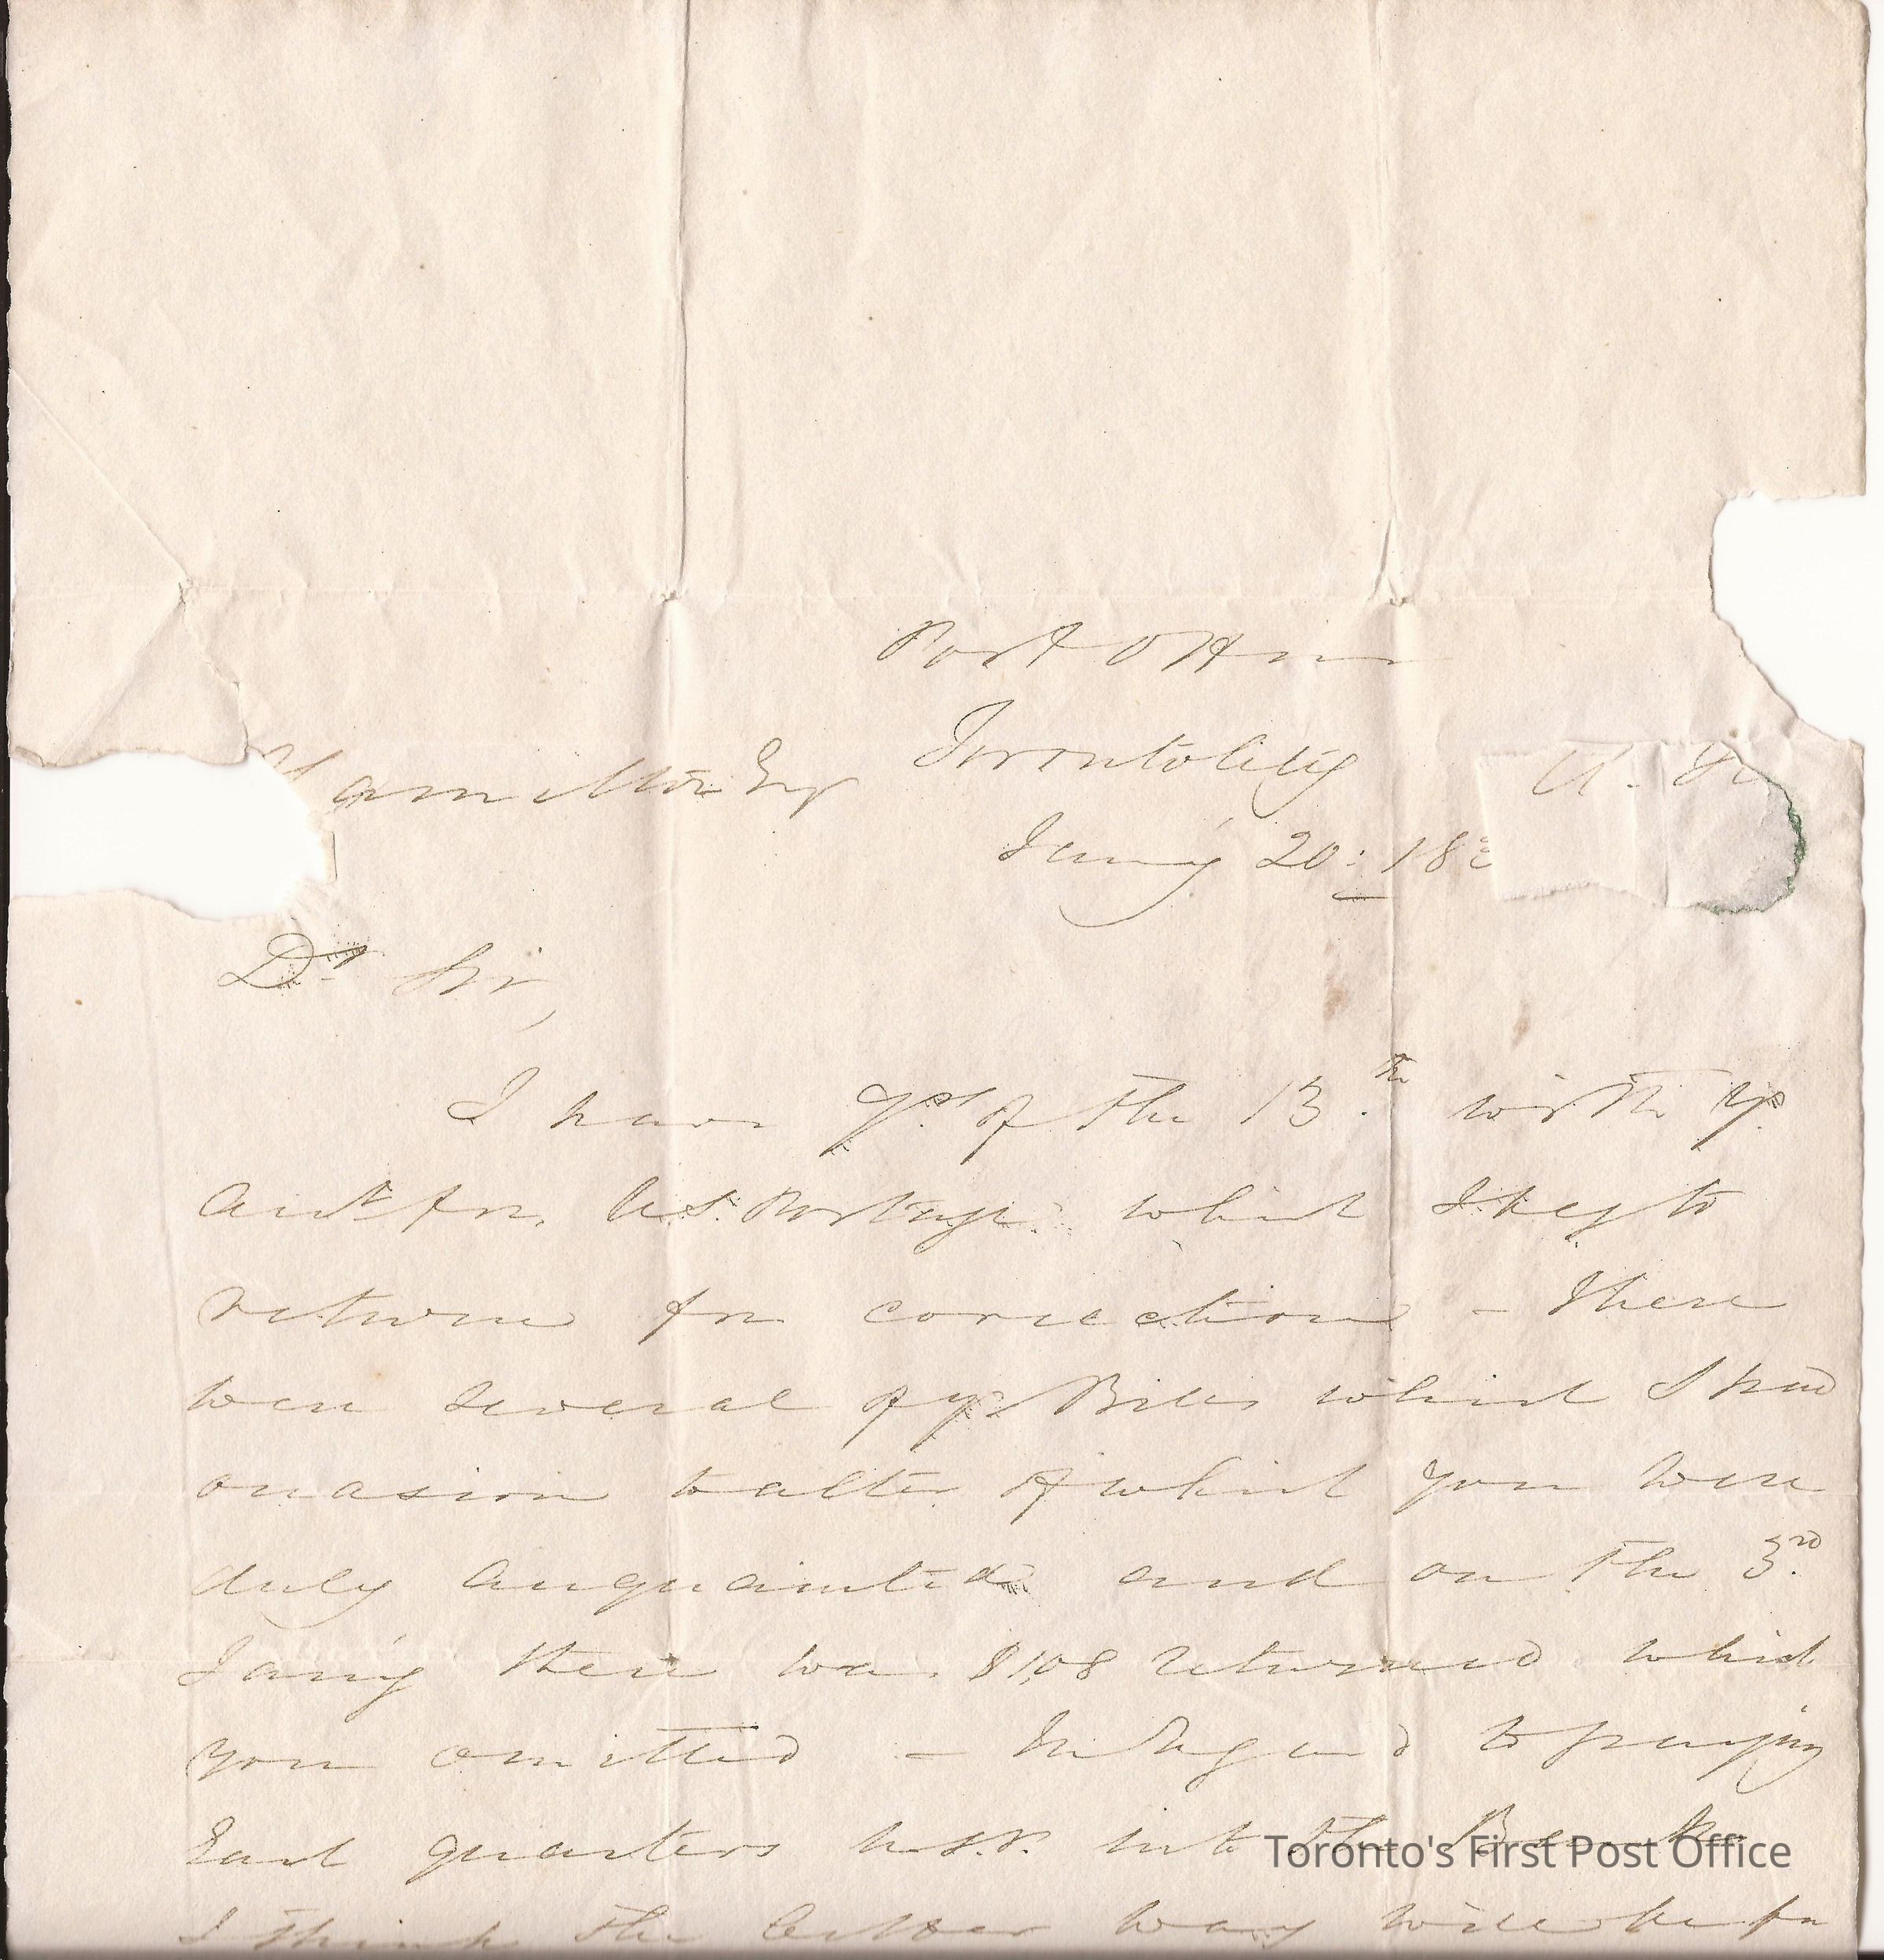 Post Office
Toronto City
Hamilton Esqr
U. S.
Jan'y 20: 183
Dr. Sir,
I have yrs of the 13.th with yr.
acct for U.S. Postage which I beg to
return for correction - There
were several of yr. Bills which I had
occasion to alter of which you were
duly acquainted and on the 3.rd
Jan'y there was $1,08 returned which
you omitted - In regard to paying
Each quarters U.S.P. into the Bank
I think the better way will be for
Toronto's First Post Office